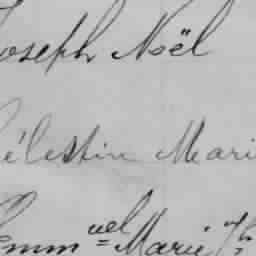 Joseph Noël
Célestin Mari
Emm^uel Marie Th